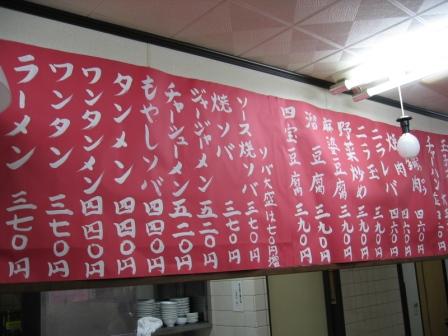 ラーメン 三七〇円
ワンタン 三七〇円
ワンタンメン 四四〇円
タンメン 四四〇円
もやしソバ 四四〇円
チャーシューメン 五二〇円
ジャージャメン 五二〇円
焼ソバ 三七〇円
ソース焼ソバ 三七〇円
ソバ大盛は七〇円増
四宝豆腐 三九〇円
沼豆腐 三九〇円
麻婆豆腐 三九〇円
野菜炒め 三九〇円
ニラ玉 三九〇円
ニラレバ 三九〇円
焼肉 四六〇円